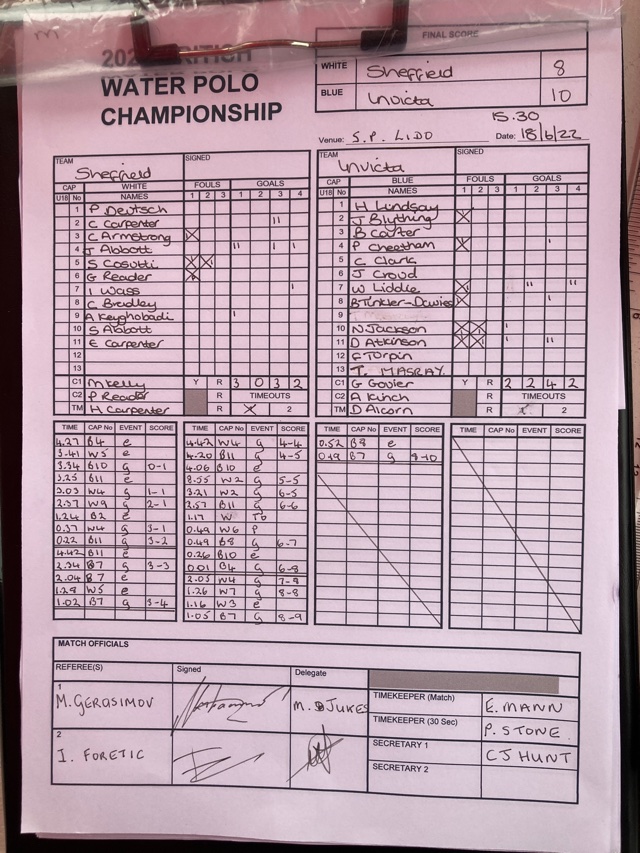 FINAL SCORE
WATER POLO
CHAMPIONSHIP
WHITE Sheffield 8
BLUE Invicta 10
15.30
Venue: S.P. LIDO Date: 18/6/22
TEAM Sheffield SIGNED
CAP WHITE FOULS GOALS
U18 No NAMES 1 2 3 1 2 3 4
1 P Deutsch
2 C Carpenter II
3 C Armstrong X
4 J Abbott II I I
5 S Cosutti X X
6 G Reader X
7 I Wass I
8 C Bradley
9 A Keyghobadi I
10 S Abbott
11 E Carpenter
12
13
C1 M Kelly Y R 3 0 3 2
C2 P Reader R TIMEOUTS
TM H Carpenter R X 2
TEAM Invicta SIGNED
CAP BLUE FOULS GOALS
U18 No NAMES 1 2 3 1 2 3 4
1 H Lindsay
2 J Blything X
3 B Carter
4 P Cheetham X I
5 C Clark
6 J Croud
7 W Liddle X II II
8 B Tinkler-Davies X I
9
10 N Jackson X X I
11 D Atkinson X X I II
12 F Turpin
13 T. MASRAY
C1 G Govier Y R 2 2 4 2
C2 A Kinch R TIMEOUTS
TM D Alcorn R X 2
TIME CAP No EVENT SCORE
4.27 B4 e
3.41 W5 e
3.34 B10 g 0-1
3.25 B11 e
3.03 W4 g 1-1
2.37 W9 g 2-1
1.24 B2 e
0.37 W4 g 3-1
0.22 B11 g 3-2
4.42 B11 e
2.34 B7 g 3-3
2.04 B7 e
1.28 W5 e
1.02 B7 g 3-4
TIME CAP No EVENT SCORE
4.42 W4 g 4-4
4.20 B11 g 4-5
4.06 B10 e
3.55 W2 g 5-5
3.21 W2 g 6-5
2.57 B11 g 6-6
1.17 W To
0.49 W6 P
0.49 B8 g 6-7
0.26 B10 e
0.01 B4 g 6-8
2.05 W4 g 7-8
1.26 W7 g 8-8
1.16 W3 e
1.05 B7 g 8-9
TIME CAP No EVENT SCORE
0.52 B8 e
0.19 B7 g 8-10
TIME CAP No EVENT SCORE
MATCH OFFICIALS
REFEREE(S) Signed Delegate
1 M. GERASIMOV M. DJUKES
2 I. FORETIC
TIMEKEEPER (Match) E. MANN
TIMEKEEPER (30 Sec) P. STONE
SECRETARY 1 CJ HUNT
SECRETARY 2